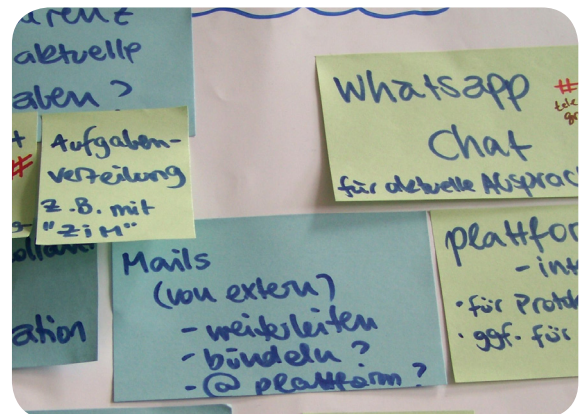 aktuelle
aben?
Aufgaben-
verteilung
z.B. mit
"ZiM"
Whatsapp #
Chat
für aktuelle Absprac
Mails
(von extern)
- weiterleiten
- bündeln?
- @ plattform?
ation
plattfor
- int
· für Proto
· ggf. für